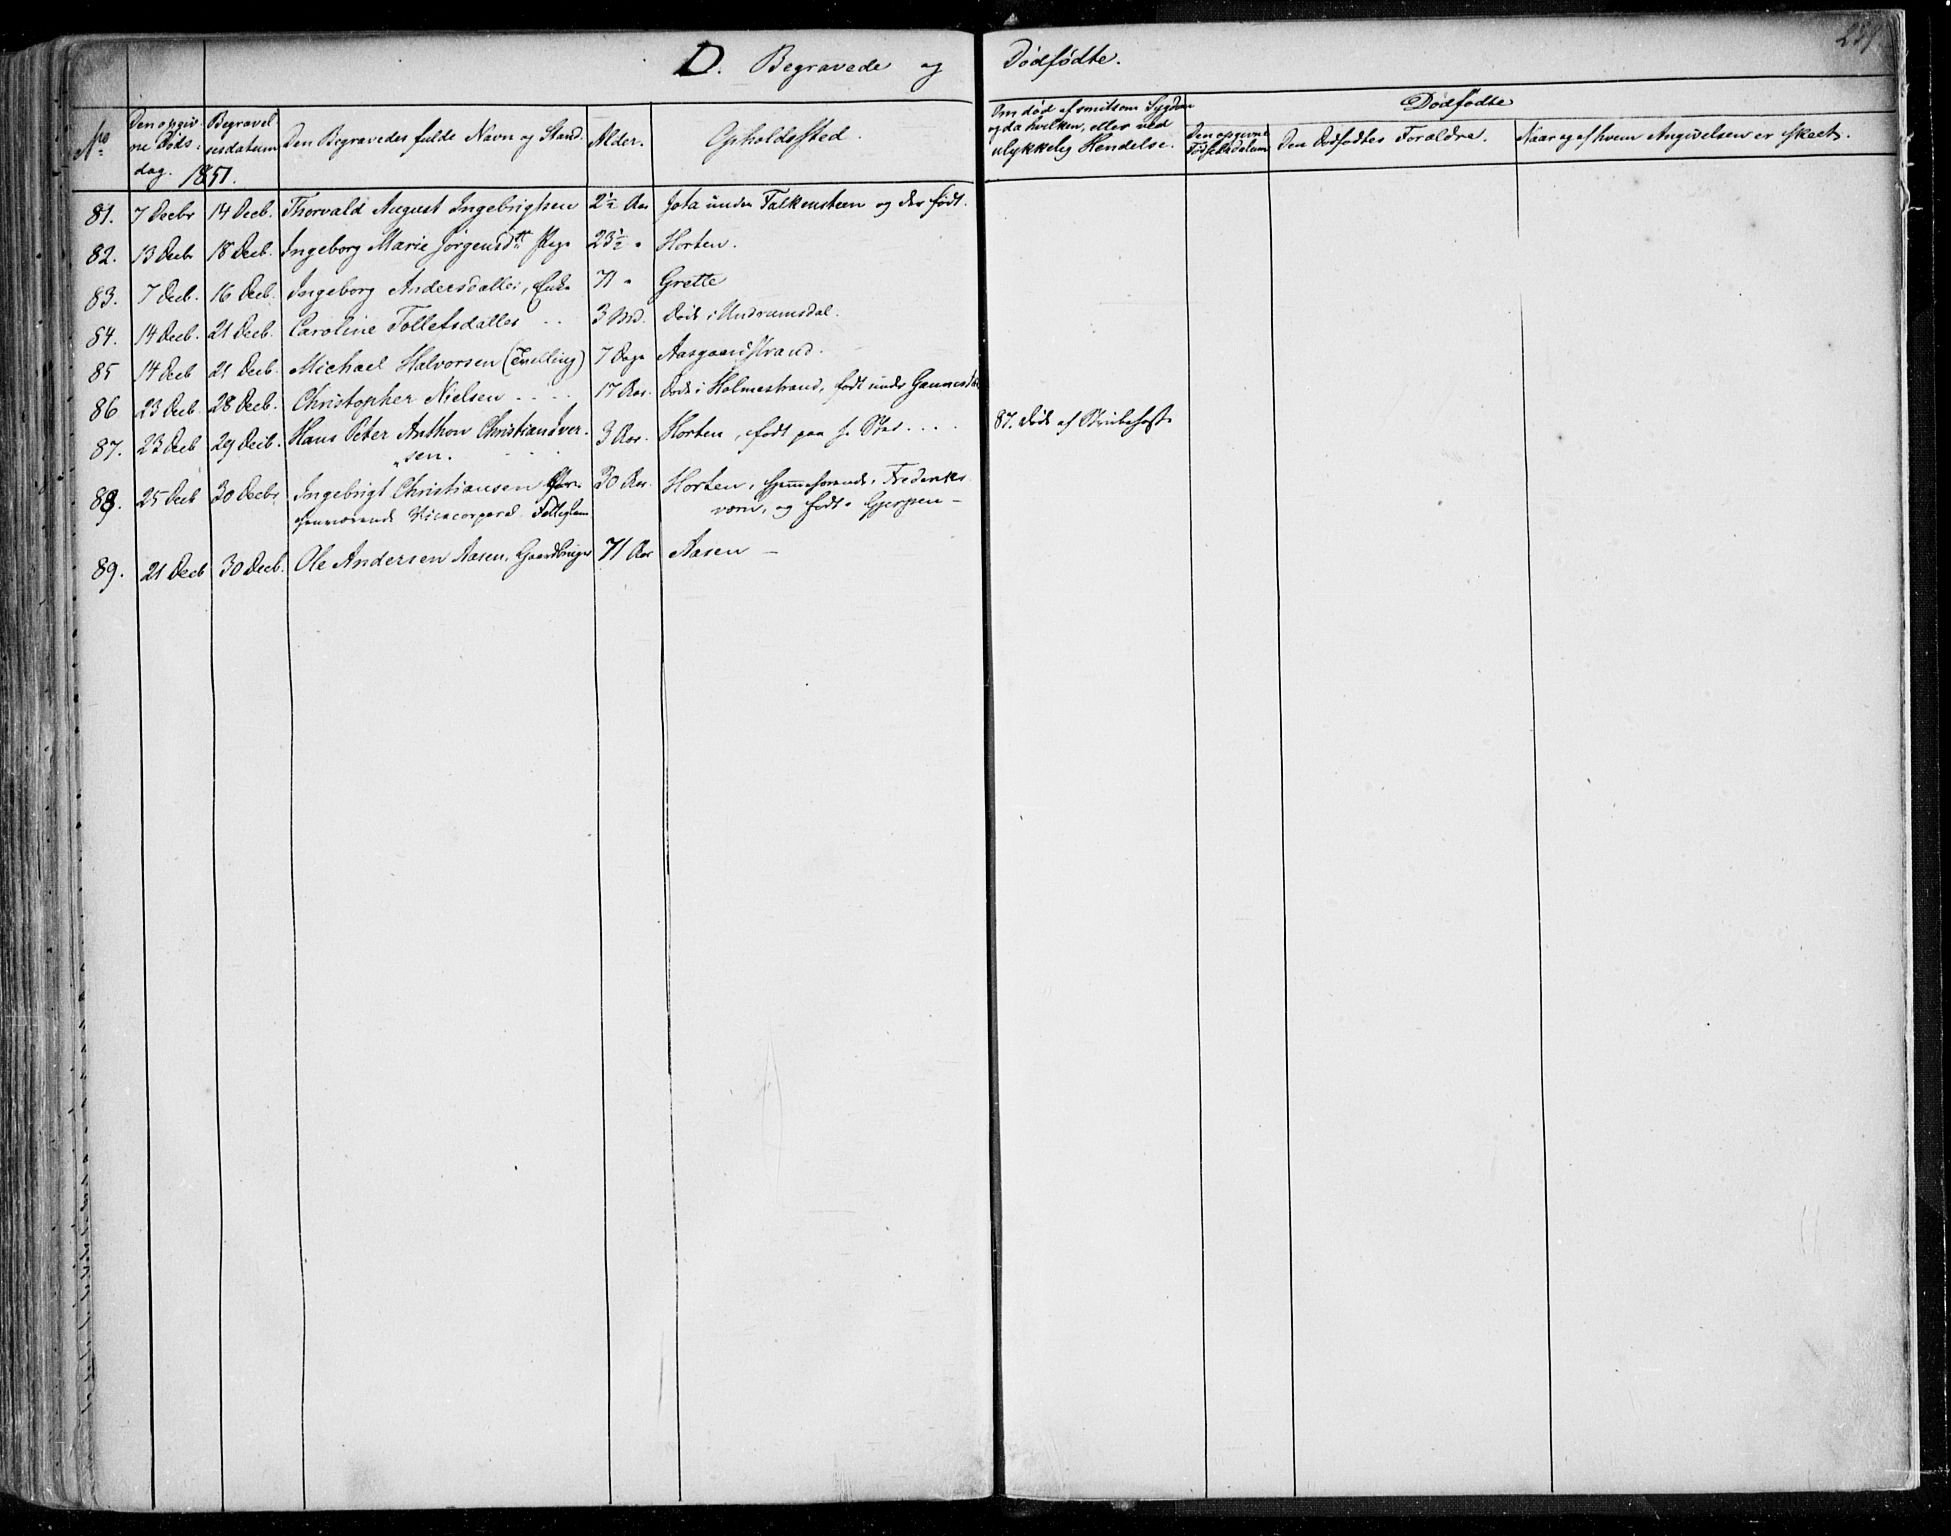 259
D. Begravede og Dødfødte.
No
Den opgiv-
ne Døds-
dag.
Begravel-
sesdatum
1851.
Den Begravedes fulde Navn og Stand.
Alder.
Opholdssted.
Om død af smitsom Sygdom
og da hvilken, eller ved
ulykkelig Hendelse.
Dødfødte
Den opgivne
Fødselsdatum
Den Dødfødtes Forældre.
Naar og af hvem Angivelsen er skeet.
81. 7 Decbr 14 Decb. Thorvald August Ingebrigtsen 2½ Aar Jota under Falkensteen og der født.
82. 13 Decbr 18 Decb. Ingeborg Marie Jørgensdtr Pige 23½ " Horten.
83. 7 Decb. 16 Decb. Ingeborg Andersdatter, Enke 71 " Grette
84. 14 Decb. 21 Decb. Caroline Tollefsdatter . . 3 Md. Døde i Undrumsdal.
85 14 Decb 21 Decb. Michael Halvorsen (Tvilling) 7 Dage Aasgaardstrand.
86 23 Decb. 28 Decb. Christopher Nielsen . . . . 17 Aar. Døde i Holmestrand, født under
87. 23 Decb 29 Decb. Hans Peter Anthon Christian Iver- 3 Aar. Horten, født paa s. Sted . . . . 87. Døde af Strubehoste
"sen.
88. 25 Decb 30 Decbr Ingebrigt Christiansen 30 Aar. Horten, hjemmehørende i Frederiks-
værn, og født i Gjerpen —
89. 21 Decb 30 Decb. Ole Andersen Aasen, Gaardbruger 71 Aar Aasen —